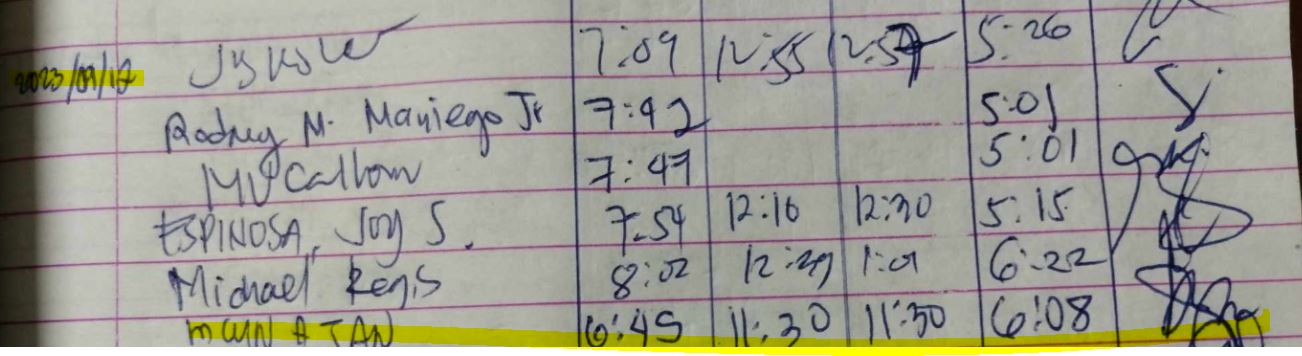 7:09 12:55 12:57 5:26
2023/09/12
Rodney M. Maniego Jr 7:42 5:01
7:47 5:01
ESPINOSA, Joy S. 7:54 12:16 12:30 5:15
Michael Regis 8:02 12:29 1:01 6:22
A TAN 6:45 11:30 11:30 6:08